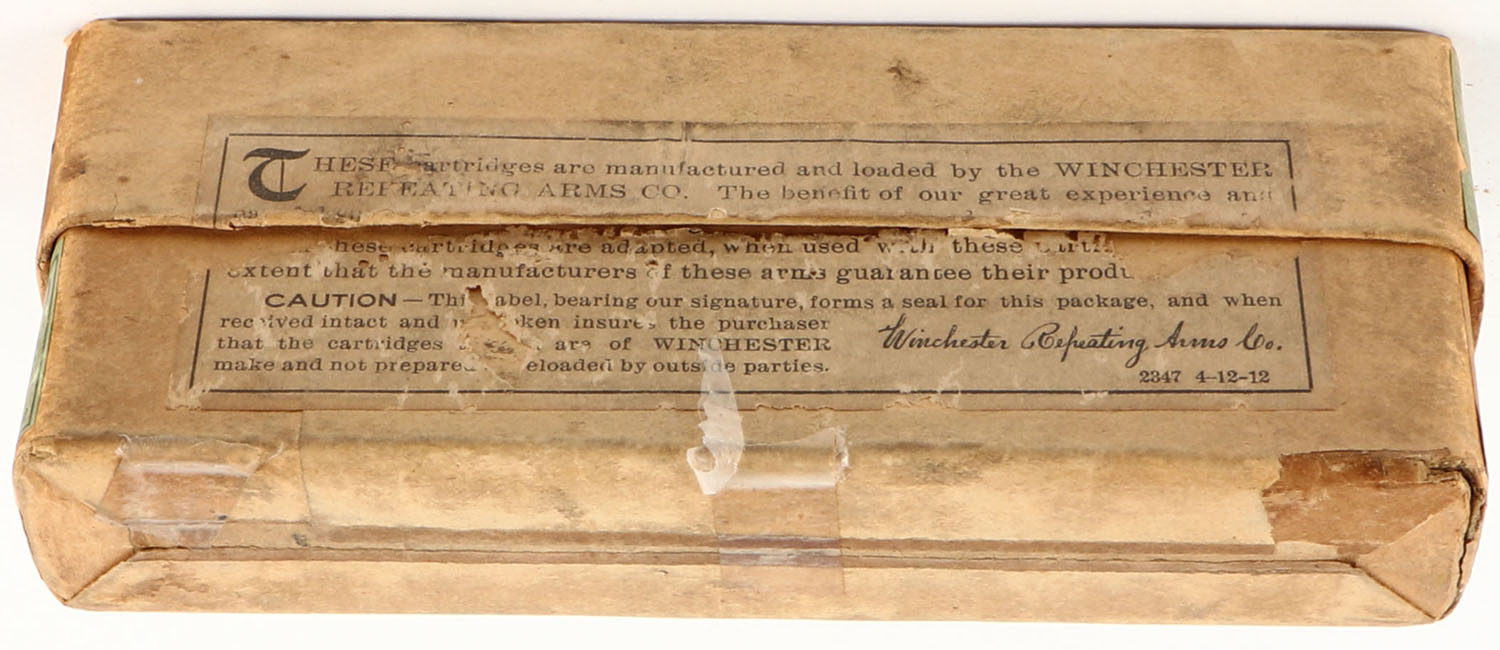 THESE cartridges are manufactured and loaded by the WINCHESTER
REPEATING ARMS CO. The benefit of our great experience and
these cartridges are adapted, when used with these
extent that the manufacturers of these arms guarantee their
CAUTION — This label, bearing our signature, forms a seal for this package, and when
received intact and insures the purchaser
that the cartridges are of WINCHESTER
make and not prepared reloaded by outside parties.
Winchester Repeating Arms Co.
2347 4-12-12